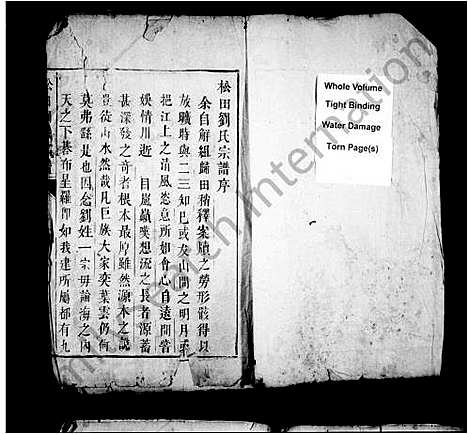 松田劉氏宗譜序
余自解組歸田稍釋案牘之勞形骸得以
放曠時與二三知己或友山間之明月或
挹江上之清風恣意所如會心自遠間嘗
娛情川逝 目崑巔嘆想流之長者源蓄
甚深發之奇者根本最厚雖然源木之說
豈徒山水然哉凡巨族大家奕葉雲仍何
莫弗繇是也因念劉姓一宗毋論海之內
天之下碁布星羅即如我建所屬都有九
Whole Volume
Tight Binding
Water Damage
Torn Page(s)